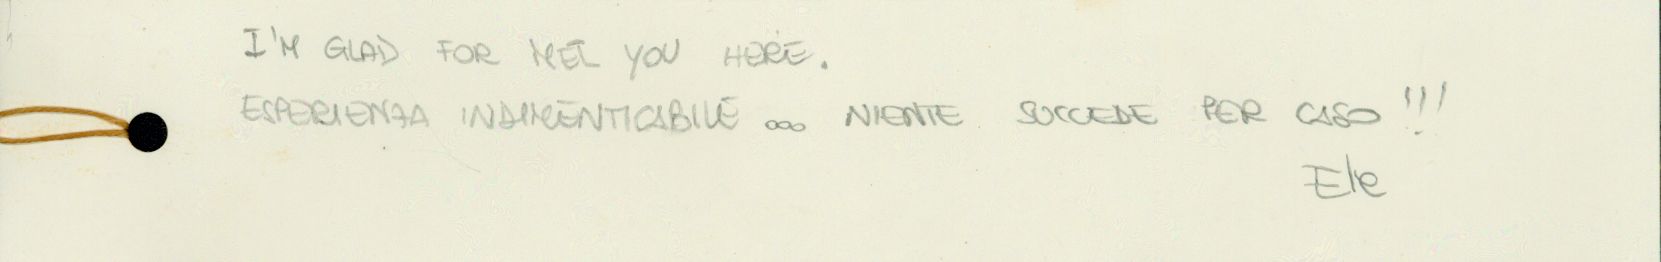 I'M GLAD FOR MET YOU HERE.
ESPERIENZA INDIMENTICABILE ... NIENTE SUCCEDE PER CASO!!!
Ele